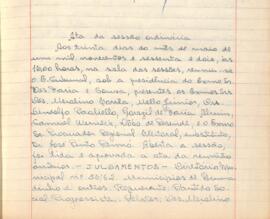 Ata da sessão ordinária
Aos trinta dias do mês de maio de
um mil, novecentos e sessenta e dois, às
14,00 horas, na sala das sessões, reuniu-se
o E. Tribunal, sob a presidência do Exmo Sr.
Des. Faria e Sousa, presentes os Exmos Srs.
Des. Merolino Corrêa, Mello Júnior, Drs.
Arnolfo Raphaello, Gorazil de Faria Alvim,
Samuel Werneck, Lôbo de Resende, e o Exmo
Sr. Procurador Regional Eleitoral, substituto,
Dr. José Pinto Renno. Aberta a sessão,
foi lida e aprovada a ata da reunião
anterior. - JULGAMENTOS - Diretório Muni-
cipal nº 50/62. Municípios de
e outros. Requerente: Partido So-
cial Progressista. Relator: Des. Merolino